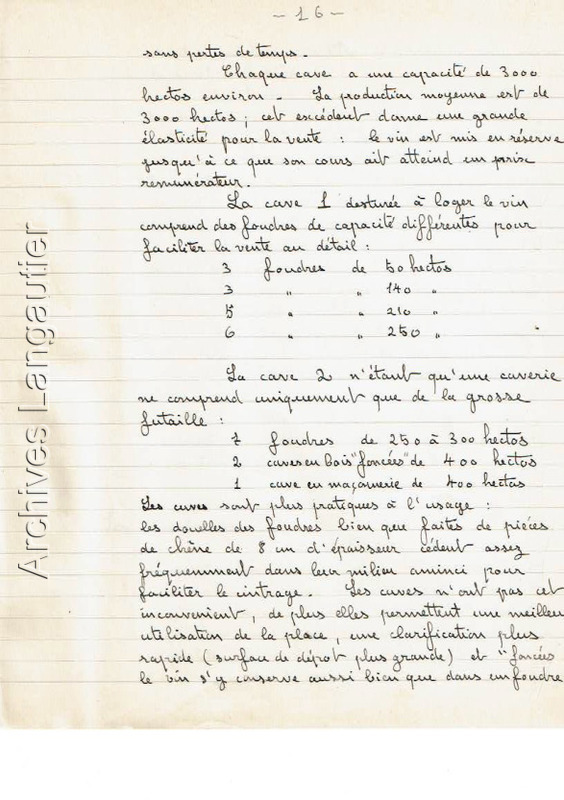 - 16 -
sans pertes de temps.
Chaque cave a une capacité de 3000
hectos environ. La production moyenne est de
3000 hectos ; cet excédent donne une grande
élasticité pour la vente : le vin est mis en réserve
jusqu'à ce que son cours ait atteind un prix
remunérateur.
La cave 1 destinée à loger le vin
comprend des foudres de capacité différentes pour
faciliter la vente au détail :
3 foudres de 50 hectos
3 " " 140 "
5 " " 210 "
6 " " 250 "
La cave 2 n'étant qu'une caverie
ne comprend uniquement que de la grosse
futaille :
7 foudres de 250 à 300 hectos
2 caves en bois "foncées" de 400 hectos
1 cave en maçonnerie de 400 hectos
Les cuves sont plus pratiques à l'usage :
les douelles des foudres bien que faites de pièces
de chêne de 8 cm d'épaisseur cèdent assez
fréquemment dans leur milieu aminci pour
faciliter le cintrage. Les cuves n'ont pas cet
inconvenient, de plus elles permettent une meilleu
utilisation de la place, une clarification plus
rapide (surface de dépot plus grande) et "foncées
le vin s'y conserve aussi bien que dans un foudre
Archives Langautier